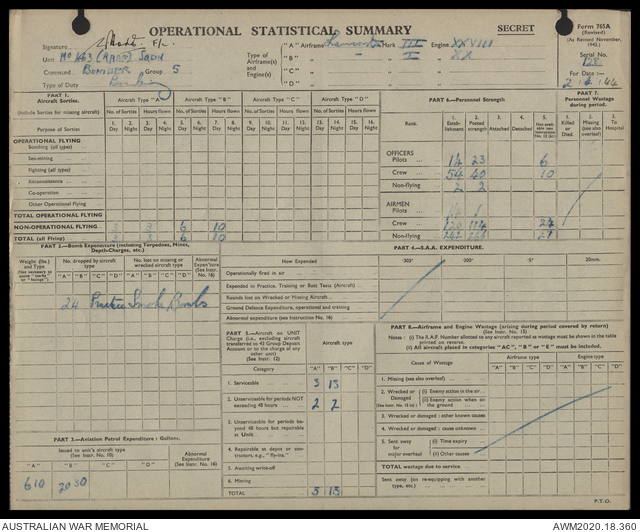 OPERATIONAL STATISTICAL SUMMARY
SECRET
Form 765A
(Revised)
(As Revised November, 1942.)
Signature F/L.
Unit No 463 (RAAF) Sqdn
Command BOMBER Group 5
Type of Duty Bombing
Type of Airframe(s) and Engine(s)
"A" Airframe Lancaster Mark III Engine XXVIII
"B" " - " I " XX
"C" "
"D" "
Serial No.
128
For Date :—
PART 1.
Aircraft Sorties.
(Include Sorties for missing aircraft)
Aircraft Type "A"
Aircraft Type "B"
Aircraft Type "C"
Aircraft Type "D"
No. of Sorties Hours Flown No. of Sorties Hours Flown No. of Sorties Hours Flown No. of Sorties Hours Flown
Purpose of Sorties
1. Day 2. Night 3. Day 4. Night 5. Day 6. Night 7. Day 8. Night 9. Day 10. Night 11. Day 12. Night 13. Day 14. Night 15. Day 16. Night
OPERATIONAL FLYING
Bombing (all types)
Sea-mining
Fighting (all types)
Reconnaissance
Co-operation
Other Operational Flying
TOTAL OPERATIONAL FLYING
NON-OPERATIONAL FLYING 3 3 6 10
TOTAL (all Flying) 3 3 6 10
PART 6.—Personnel Strength
Rank.
1. Establishment
2. Posted strength
3. Attached
4. Detached
5.
OFFICERS
Pilots 14 23 6
Crew 54 40 10
Non-flying 2 2
AIRMEN
Pilots
Crew 24
Non-flying
PART 7.
Personnel Wastage during period.
1. Killed or Died.
2. Missing (see also overleaf)
3. To Hospital
PART 2.—Bomb Expenditure (including Torpedoes, Mines, Depth-Charges, etc.)
Weight (lbs.) and Type
No. dropped by aircraft type
No. lost on missing or wrecked aircraft type
Abnormal Expenditure (See Instr. No. 16)
"A" "B" "C" "D" "A" "B" "C" "D"
24 Practice Smoke Bombs
PART 4.—S.A.A. EXPENDITURE.
How Expended
·303" ·300" ·5" 20mm.
Operationally fired in air
Expended in Practice, Training or Butt Tests (Aircraft)
Rounds lost on Wrecked or Missing Aircraft
Ground Defence Expenditure, operational and training
Abnormal expenditure (see Instruction No. 16)
PART 5.—Aircraft on UNIT Charge (i.e., excluding aircraft transferred to 43 Group Deposit Account or to the charge of any other unit)
(See Instr. 12)
Category "A" "B" "C" "D"
1. Serviceable 3 13
2. Unserviceable for periods NOT exceeding 48 hours 2 2
3. Unserviceable for periods beyond 48 hours but repairable at Unit
4. Repairable at depot or contractors, e.g., "fly-ins."
5. Awaiting write-off
6. Missing
TOTAL 5 15
PART 8.—Airframe and Engine Wastage (arising during period covered by return)
(See Instr. No. 15)
Notes : (i) The R.A.F. Number allotted to any aircraft reported as wastage must be shown in the table printed on reverse.
(ii) All aircraft placed in categories "AC", "B" or "E" must be included.
Cause of Wastage
Airframe type
Engine type
"A" "B" "C" "D" "A" "B" "C" "D"
1. Missing (see also overleaf)
2. Wrecked or Damaged (i) Enemy action in the air
(ii) Enemy action when on the ground
3. Wrecked or damaged : other known causes
4. Wrecked or damaged : cause unknown
5. Sent away for major overhaul (i) Time expiry
(ii) Other causes
TOTAL wastage due to service
Sent away (on re-equipping with another type, etc.)
PART 3.—Aviation Petrol Expenditure : Gallons.
Issued to unit's aircraft type (See Instr. No. 10)
Abnormal Expenditure (See Instr. No. 16)
"A" "B" "C" "D"
610 2030
P.T.O.
AUSTRALIAN WAR MEMORIAL
AWM2020.18.360